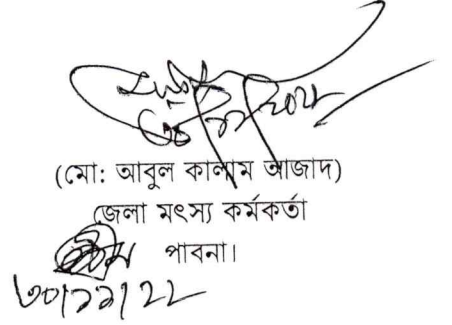 (মো: আবুল কালাম আজাদ)
জেলা মৎস্য কর্মকর্তা
পাবনা।
৩০/১১/২২